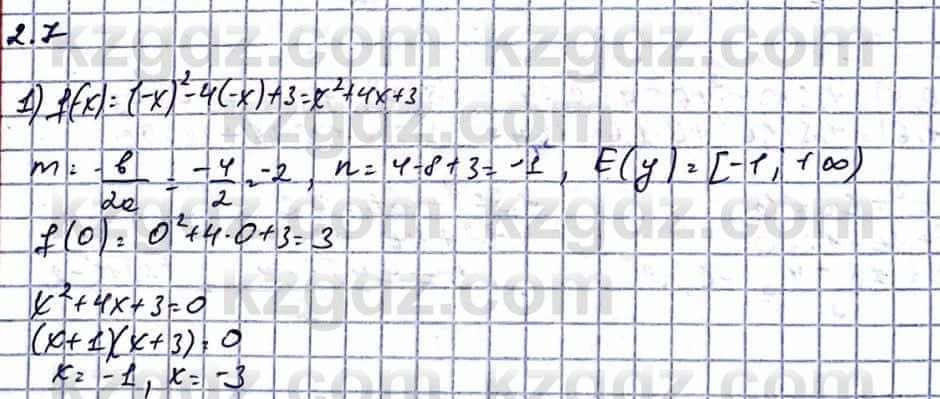 2.7
kzgdz.com kzgdz.com
1) f(-x) = (-x)²-4(-x)+3=x²+4x+3
kzgdz.com
m = -b/2a = -4/2 = -2, n = 4-8+3 = -1, E(y) = [-1; +∞)
f(0) = 0²+4·0+3 = 3
kzgdz.com
x²+4x+3=0
(x+1)(x+3) = 0
x = -1, x = -3
kzgdz.com kzgdz.com